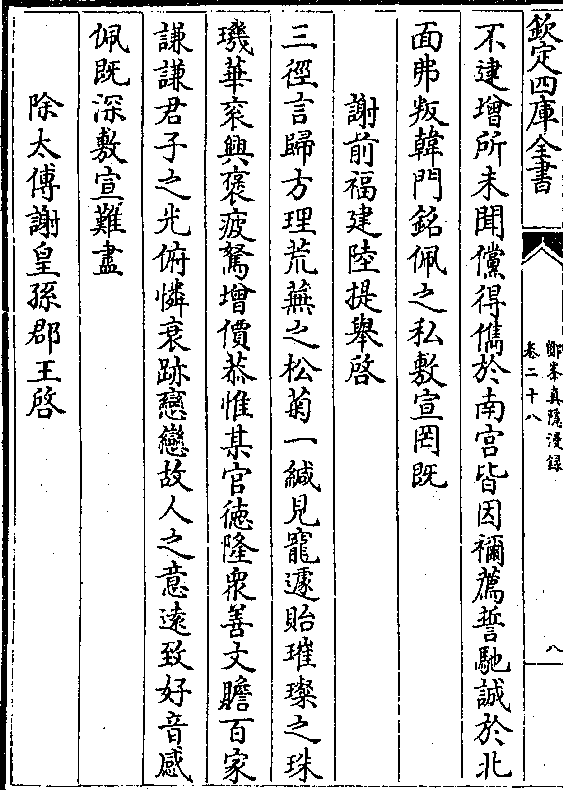 欽定四庫全書
鄮峯真隱漫録
卷二十八
八
不逮增所未聞儻得儁於南宫皆因禰薦誓馳誠於北
面弗叛韓門銘佩之私敷宣罔既
謝前福建陸提舉啓
三徑言歸方理荒蕪之松菊一緘見寵遽貽璀璨之珠
璣華衮興褒疲駑增價恭惟某官徳隆衆善文贍百家
謙謙君子之光俯憐衰跡戀戀故人之意遠致好音感
佩既深敷宣難盡
除太傅謝皇孫郡王啓